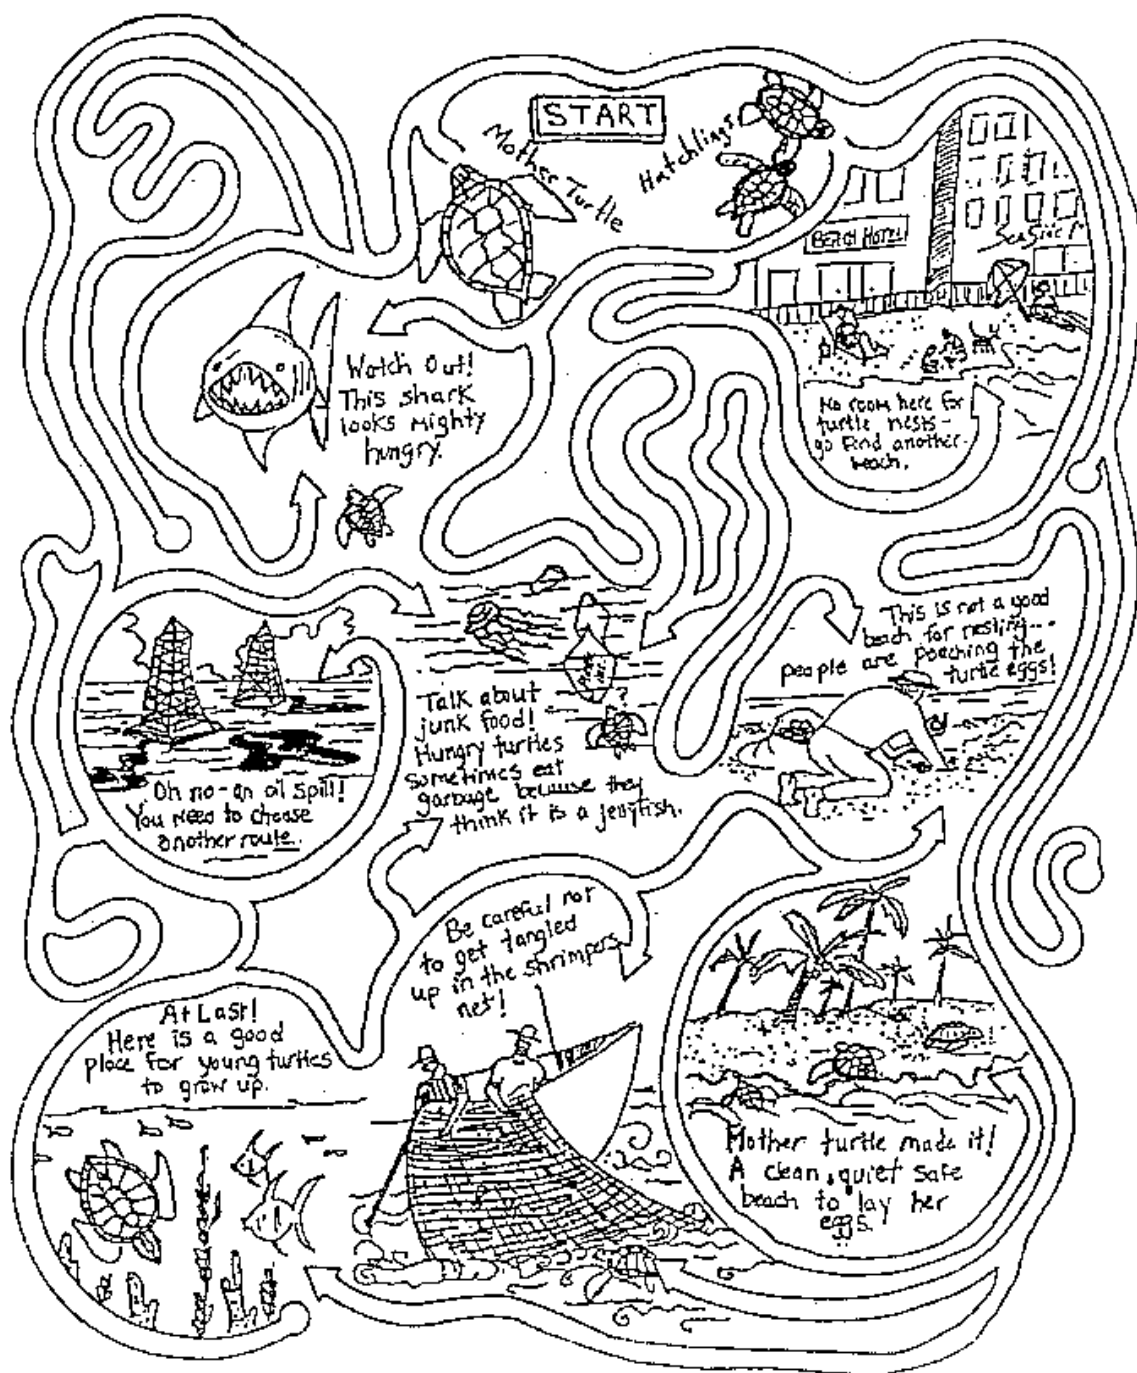 START
Mother Turtle
Hatchlings
BEACH HOTEL
No room here for
turtle nests -
go find another
beach.
Watch Out!
This shark
looks mighty
hungry.
This is not a good
beach for nesting...
people are poaching the
turtle eggs!
?
Talk about
junk food!
Hungry turtles
sometimes eat
garbage because they
think it is a jellyfish.
Oh no - an oil spill!
You need to choose
another route.
Be careful not
to get tangled
up in the shrimpers
net!
At Last!
Here is a good
place for young turtles
to grow up.
Mother turtle made it!
A clean, quiet safe
beach to lay her
eggs.